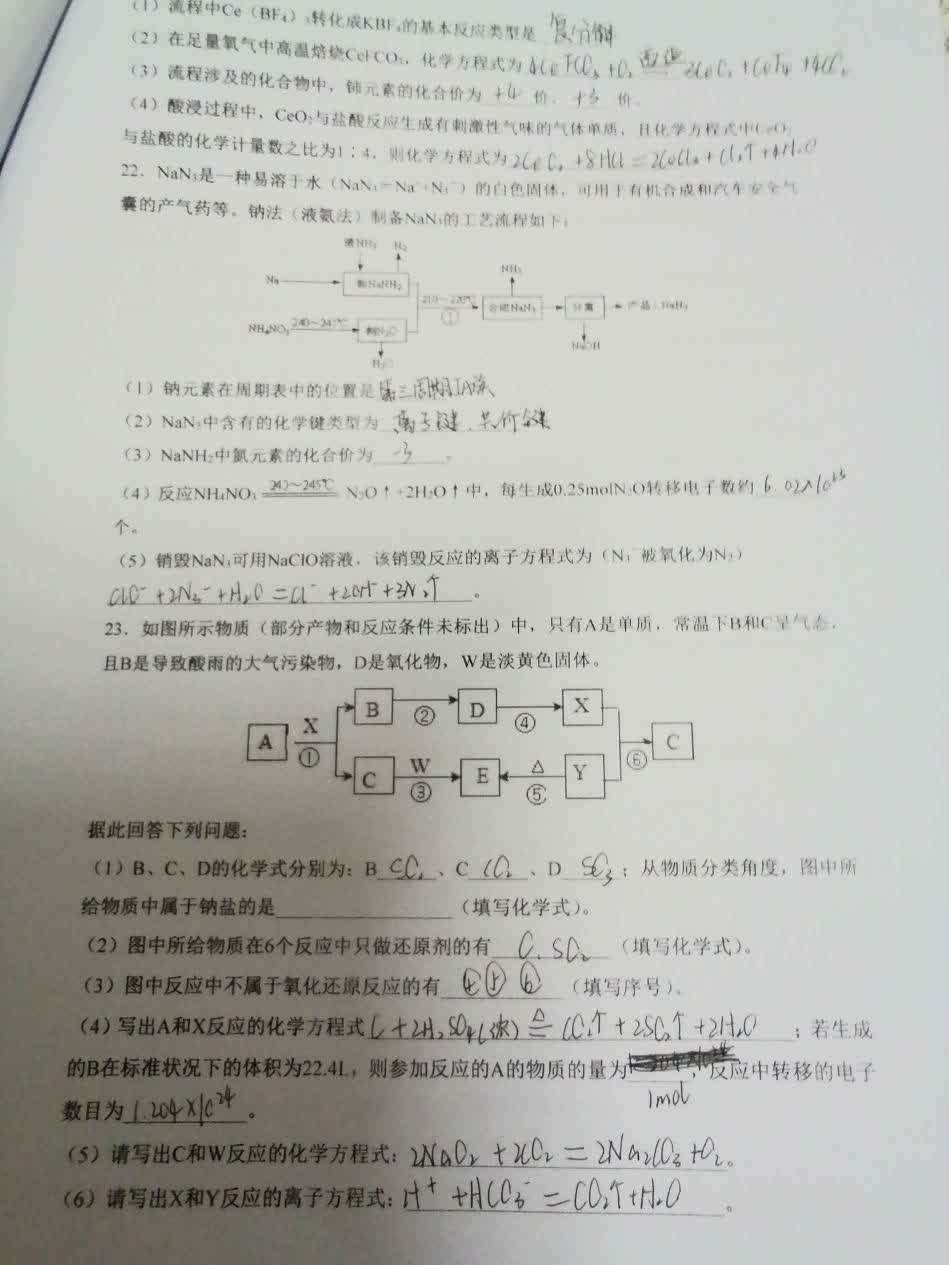 (1) 流程中Ce（BF₄）₃转化成KBF₄的基本反应类型是 复分解
(2) 在足量氧气中高温焙烧CeFCO₃，化学方程式为 4CeFCO₃ +O₂ 高温 3CeO₂ +CeF₄ +4CO₂
(3) 流程涉及的化合物中，铈元素的化合价为 +4 价、+3 价
(4) 酸浸过程中，CeO₂与盐酸反应生成有刺激性气味的气体单质，且化学方程式中CeO₂
与盐酸的化学计量数之比为1：4，则化学方程式为 2CeO₂ +8HCl = 2CeCl₃ + Cl₂↑ +4H₂O
22．NaN₃是一种易溶于水（NaN₃=Na⁺+N₃⁻）的白色固体，可用于有机合成和汽车安全气
囊的产气药等。钠法（液氨法）制备NaN₃的工艺流程如下：
液NH₃ N₂
NH₃
Na 制NaNH₂
210～220℃ ① 合成NaN₃ 分离 产品：NaN₃
NH₄NO₃ 240～245℃ 制N₂O
NaOH
H₂O
(1) 钠元素在周期表中的位置是 第三周期IA族
(2) NaN₃中含有的化学键类型为 离子键、共价键
(3) NaNH₂中氮元素的化合价为 -3 。
(4) 反应NH₄NO₃ 240～245℃ N₂O↑+2H₂O↑中，每生成0.25molN₂O转移电子数约 6.02×10²³
个。
(5) 销毁NaN₃可用NaClO溶液，该销毁反应的离子方程式为（N₃⁻被氧化为N₂）
ClO⁻ +2N₃⁻ +H₂O =Cl⁻ +2OH⁻ +3N₂↑ 。
23．如图所示物质（部分产物和反应条件未标出）中，只有A是单质，常温下B和C呈气态，
且B是导致酸雨的大气污染物，D是氧化物，W是淡黄色固体。
B ② D ④ X
A X ① ⑥ C
C W ③ E △ ⑤ Y
据此回答下列问题：
(1) B、C、D的化学式分别为：B SO₂ 、C CO₂ 、D SO₃ ；从物质分类角度，图中所
给物质中属于钠盐的是 （填写化学式）。
(2) 图中所给物质在6个反应中只做还原剂的有 C、SO₂ （填写化学式）。
(3) 图中反应中不属于氧化还原反应的有 ④⑤⑥ （填写序号）。
(4) 写出A和X反应的化学方程式 C +2H₂SO₄(浓) △= CO₂↑ +2SO₂↑ +2H₂O ；若生成
的B在标准状况下的体积为22.4L，则参加反应的A的物质的量为 ，反应中转移的电子
1mol
数目为 1.204×10²⁴ 。
(5) 请写出C和W反应的化学方程式：2Na₂O₂ +2CO₂ = 2Na₂CO₃ +O₂。
(6) 请写出X和Y反应的离子方程式：H⁺ +HCO₃⁻ =CO₂↑+H₂O 。